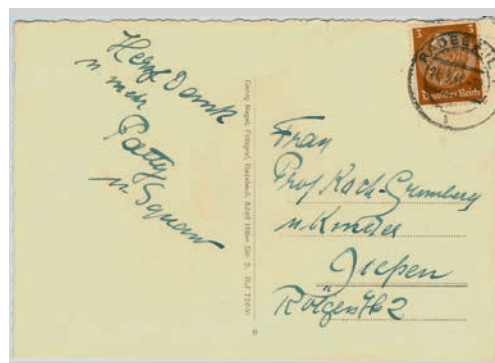 Herzl Dank
u. mein
Patty
u Squaw
Georg Nagel, Fotograf, Radebeul, Adolf Hitler Str. 2, Ruf 72691
3
Deutsches Reich
RADEBEUL
Frau
Prof Koch-Grünberg
u. Kinder
Giessen
2